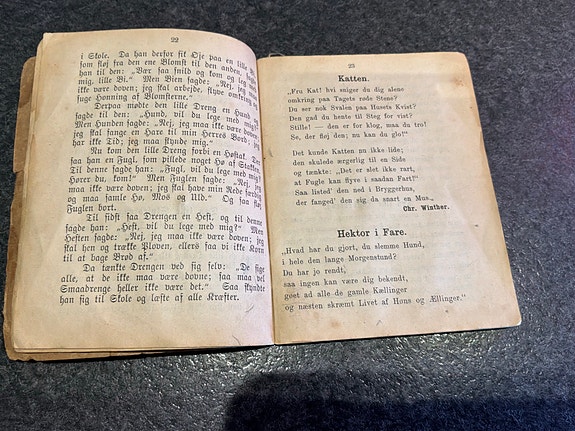 22
i Skole. Da han derfor fik Øje paa en lille Bi,
som fløj fra den ene Blomst til den anden, sagde
han til den: „Vær saa snild og kom og leg med
mig, lille Bi.“ Men Bien sagde: „Nej, jeg maa
ikke være doven; jeg skal arbejde, flyve omkring og
suge Honning af Blomsterne.“
Derpaa mødte den lille Dreng en Hund og
sagde til den: „Hund, vil du lege med mig?“
Men Hunden sagde: „Nej, jeg maa ikke være doven;
jeg skal fange en Hare til min Herres Bord; jeg
har ikke Tid; jeg maa skynde mig.“
Nu kom den lille Dreng forbi en Høstak. Der
saa han en Fugl, som pillede noget Hø af Stakken.
Til denne sagde han: „Fugl, vil du lege med mig?
Hører du, kom!“ Men Fuglen sagde: „Nej, jeg
maa ikke være doven; jeg skal have min Rede færdig
og maa samle Hø, Mos og Uld.“ Og saa fløj
Fuglen bort.
Til sidst saa Drengen en Hest, og til denne
sagde han: „Hest, vil du lege med mig?“ Men
Hesten sagde: „Nej, jeg maa ikke være doven; jeg
skal hen og trække Ploven, ellers faa vi ikke Korn
til at bage Brød af.“
Da tænkte Drengen ved sig selv: „De sige
alle, at de ikke maa være dovne; saa maa vel
Smaadrenge heller ikke være det.“ Saa skyndte
han sig til Skole og læste af alle Kræfter.
23
Katten.
„Fru Kat! hvi sniger du dig alene
omkring paa Tagets røde Stene?
Du ser nok Svalen paa Husets Kvist?
Den gad du hente til Steg for vist?
Stille! — den er for klog, maa du tro!
Se, der fløj den; nu kan du glo!“
Det kunde Katten nu ikke lide;
den skulede ærgerlig til en Side
og tænkte: „Det er slet ikke rart,
at Fugle kan flyve i saadan Fart!“
Saa listed' den ned i Bryggerhus,
der fanged' den sig da snart en Mus.
Chr. Winther.
Hektor i Fare.
„Hvad har du gjort, du slemme Hund,
i hele den lange Morgenstund?
Du har jo rendt,
saa ingen kan være dig bekendt,
goet ad alle de gamle Kællinger
og næsten skræmt Livet af Høns og Ællinger.“